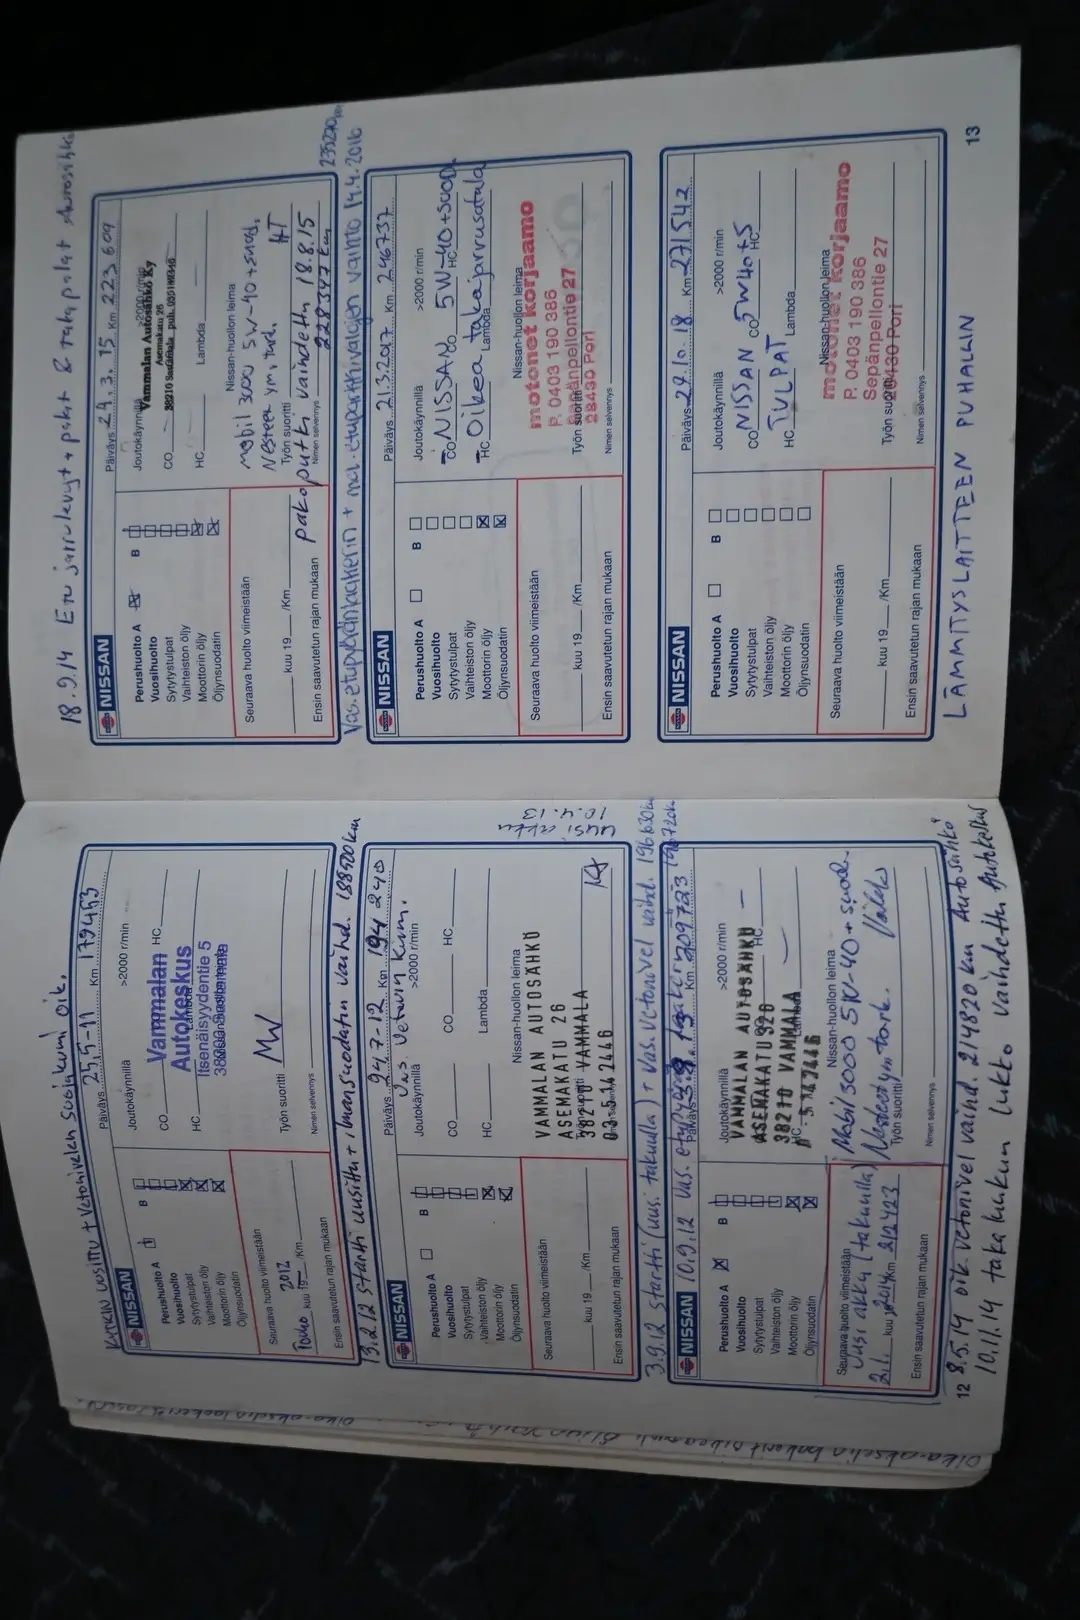 Kytkin uusittu + Vetonivelen suojakumi oik.
NISSAN
Päiväys 25.5-11 Km 179453
Perushuolto A B
Vuosihuolto
Sytytystulpat
Vaihteiston öljy
Moottorin öljy
Öljynsuodatin
Joutokäynnillä >2000 r/min
CO HC
HC Lambda
Vammalan
Autokeskus
Itsenäisyydentie 5
Työn suoritti
Nimen selvennys
Seuraava huolto viimeistään
Touko kuu 19 2012 /Km
Ensin saavutetun rajan mukaan
13.2.12 startti uusittu + ilmansuodatin vaihd. 188900 km
NISSAN
Päiväys 24.7-12 Km 194 240
Vas. Vetarin kumi.
Perushuolto A B
Vuosihuolto
Sytytystulpat
Vaihteiston öljy
Moottorin öljy
Öljynsuodatin
Joutokäynnillä >2000 r/min
CO CO HC
HC Lambda
Nissan-huollon leima
VAMMALAN AUTOSÄHKÖ
ASEMAKATU 26
38210 VAMMALA
03-5142446
Seuraava huolto viimeistään
kuu 19 /Km
Ensin saavutetun rajan mukaan
Uusi akku
10.4.13
3.9.12 startti (uusi takuulla) + Vas. Vetonivel vaihd. 196630 km
10.9.12 Vas.
NISSAN
Perushuolto A B
Vuosihuolto
Sytytystulpat
Vaihteiston öljy
Moottorin öljy
Öljynsuodatin
Joutokäynnillä >2000 r/min
VAMMALAN AUTOSÄHKÖ
ASEMAKATU 26
38210 VAMMALA
Nissan-huollon leima
Mobil 3000 5W-40 + suod.
Työn suoritti
Nimen selvennys
Seuraava huolto viimeistään
Uusi akku (takuulla)
2.1. kuu 2014 Km 212423
Ensin saavutetun rajan mukaan
12
8.5.14 oik. vetonivel vaihd. 214820 km Autosähkö
10.11.14 taka luukun lukko vaihdettu Autokeskus
18.9.14 Etu jarrulevyt + palat & taka palat Autosähkö
NISSAN
Päiväys 24.3.15 Km 223 609
Perushuolto A B
Vuosihuolto
Sytytystulpat
Vaihteiston öljy
Moottorin öljy
Öljynsuodatin
Joutokäynnillä >2000 r/min
CO
HC Lambda
Vammalan Autosähkö Ky
Asemakatu 26
38210 Sastamala
Nissan-huollon leima
mobil 3000 5W-40 + suod.
Nesteen ym. tark.
Työn suoritti
Nimen selvennys
pakoputki vaihdettu 18.8.15
228347 km
Seuraava huolto viimeistään
kuu 19 /Km
Ensin saavutetun rajan mukaan
Vas. etupyöränlaakerin + mol. etuparkkivalojen vaihto 14.4.2016
NISSAN
Päiväys 21.3.2017 Km 246737
Perushuolto A B
Vuosihuolto
Sytytystulpat
Vaihteiston öljy
Moottorin öljy
Öljynsuodatin
Joutokäynnillä >2000 r/min
CO NISSAN CO 5W-40 + SUOD. HC
HC Oikea takajarrusatula
Lambda
Nissan-huollon leima
motonet korjaamo
P. 0403 190 386
Sepänpellontie 27
28430 Pori
Työn suoritti
Nimen selvennys
Seuraava huolto viimeistään
kuu 19 /Km
Ensin saavutetun rajan mukaan
NISSAN
Päiväys 29.10.18 Km 271542
Perushuolto A B
Vuosihuolto
Sytytystulpat
Vaihteiston öljy
Moottorin öljy
Öljynsuodatin
Joutokäynnillä >2000 r/min
CO NISSAN CO 5W40+S HC
HC TULPAT Lambda
Nissan-huollon leima
motonet korjaamo
P. 0403 190 386
Sepänpellontie 27
28430 Pori
Työn suoritti
Nimen selvennys
Seuraava huolto viimeistään
kuu 19 /Km
Ensin saavutetun rajan mukaan
LÄMMITYSLAITTEEN PUHALLIN
13